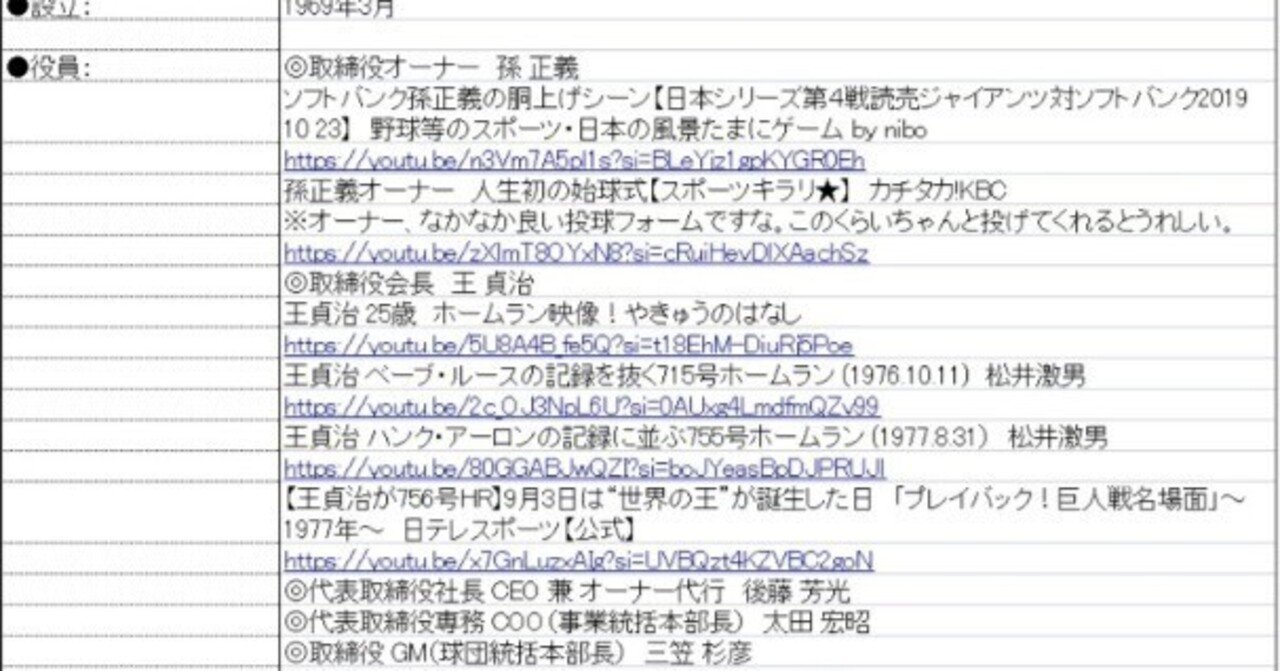 ●設立：	1969年3月
●役員：	◎取締役オーナー　孫 正義
ソフトバンク孫正義の胴上げシーン【日本シリーズ第4戦読売ジャイアンツ対ソフトバンク2019
10 23】　野球等のスポーツ・日本の風景たまにゲーム by nibo
https://youtu.be/n3Vm7A5pl1s?si=BLeYjz1gpKYGR0Eh
孫正義オーナー　人生初の始球式【スポーツキラリ★】　カチタカ!KBC
※オーナー、なかなか良い投球フォームですな。このくらいちゃんと投げてくれるとうれしい。
https://youtu.be/zXlmT8OYxN8?si=cRuiHevDIXAachSz
◎取締役会長　王 貞治
王貞治 25歳　ホームラン映像！やきゅうのはなし
https://youtu.be/5U8A4B_fe5Q?si=t18EhM-DiuRj5Poe
王貞治 ベーブ・ルースの記録を抜く715号ホームラン（1976.10.11）　松井激男
https://youtu.be/2c_OJ3NpL6U?si=0AUxg4LmdfmQZv99
王貞治 ハンク・アーロンの記録に並ぶ755号ホームラン（1977.8.31）　松井激男
https://youtu.be/80GGABJwQZI?si=boJYeasBpDJPRUJI
【王貞治が756号HR】9月3日は“世界の王”が誕生した日　「プレイバック！巨人戦名場面」～
1977年～　日テレスポーツ【公式】
https://youtu.be/x7GnLuzxAIg?si=UVBQzt4KZVBC2goN
◎代表取締役社長 CEO 兼 オーナー代行　後藤 芳光
◎代表取締役専務 COO（事業統括本部長）　太田 宏昭
◎取締役 GM（球団統括本部長）　三笠 杉彦